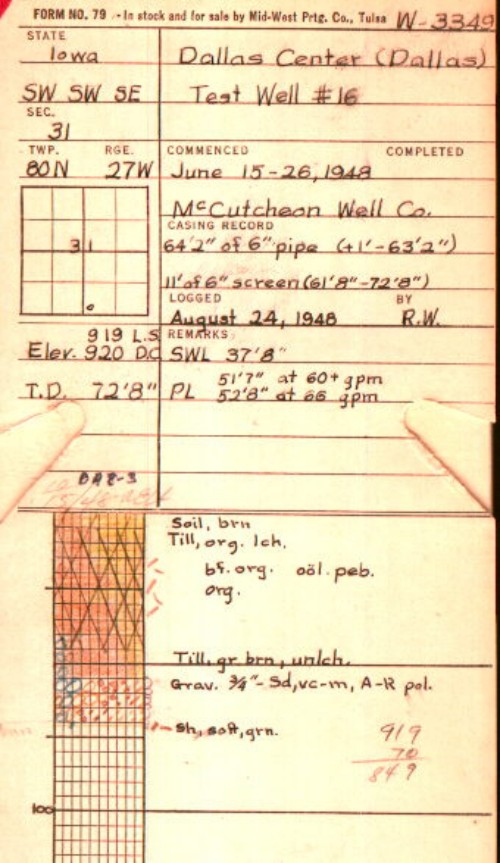 FORM NO. 79 - In stock and for sale by Mid-West Prtg. Co., Tulsa W-3349
STATE
Iowa
Dallas Center (Dallas)
SW SW SE
Test Well #16
SEC.
31
TWP. RGE.
80N 27W
COMMENCED COMPLETED
June 15-26, 1948
McCutcheon Well Co.
CASING RECORD
64'2" of 6" pipe (+1'-63'2")
11' of 6" screen (61'8"-72'8")
31
LOGGED BY
August 24, 1948 R.W.
919 L.S.
Elev. 920 D.C.
REMARKS
SWL 37'8"
T.D. 72'8"
PL 51'7" at 60+ gpm
52'8" at 66 gpm
Soil, brn
Till, org. lch.
bf. org. oöl. peb.
org.
Till, gr brn, unlch.
Grav. 3/4"- Sd, vc-m, A-R pol.
Sh, soft, grn.
919
70
849
100